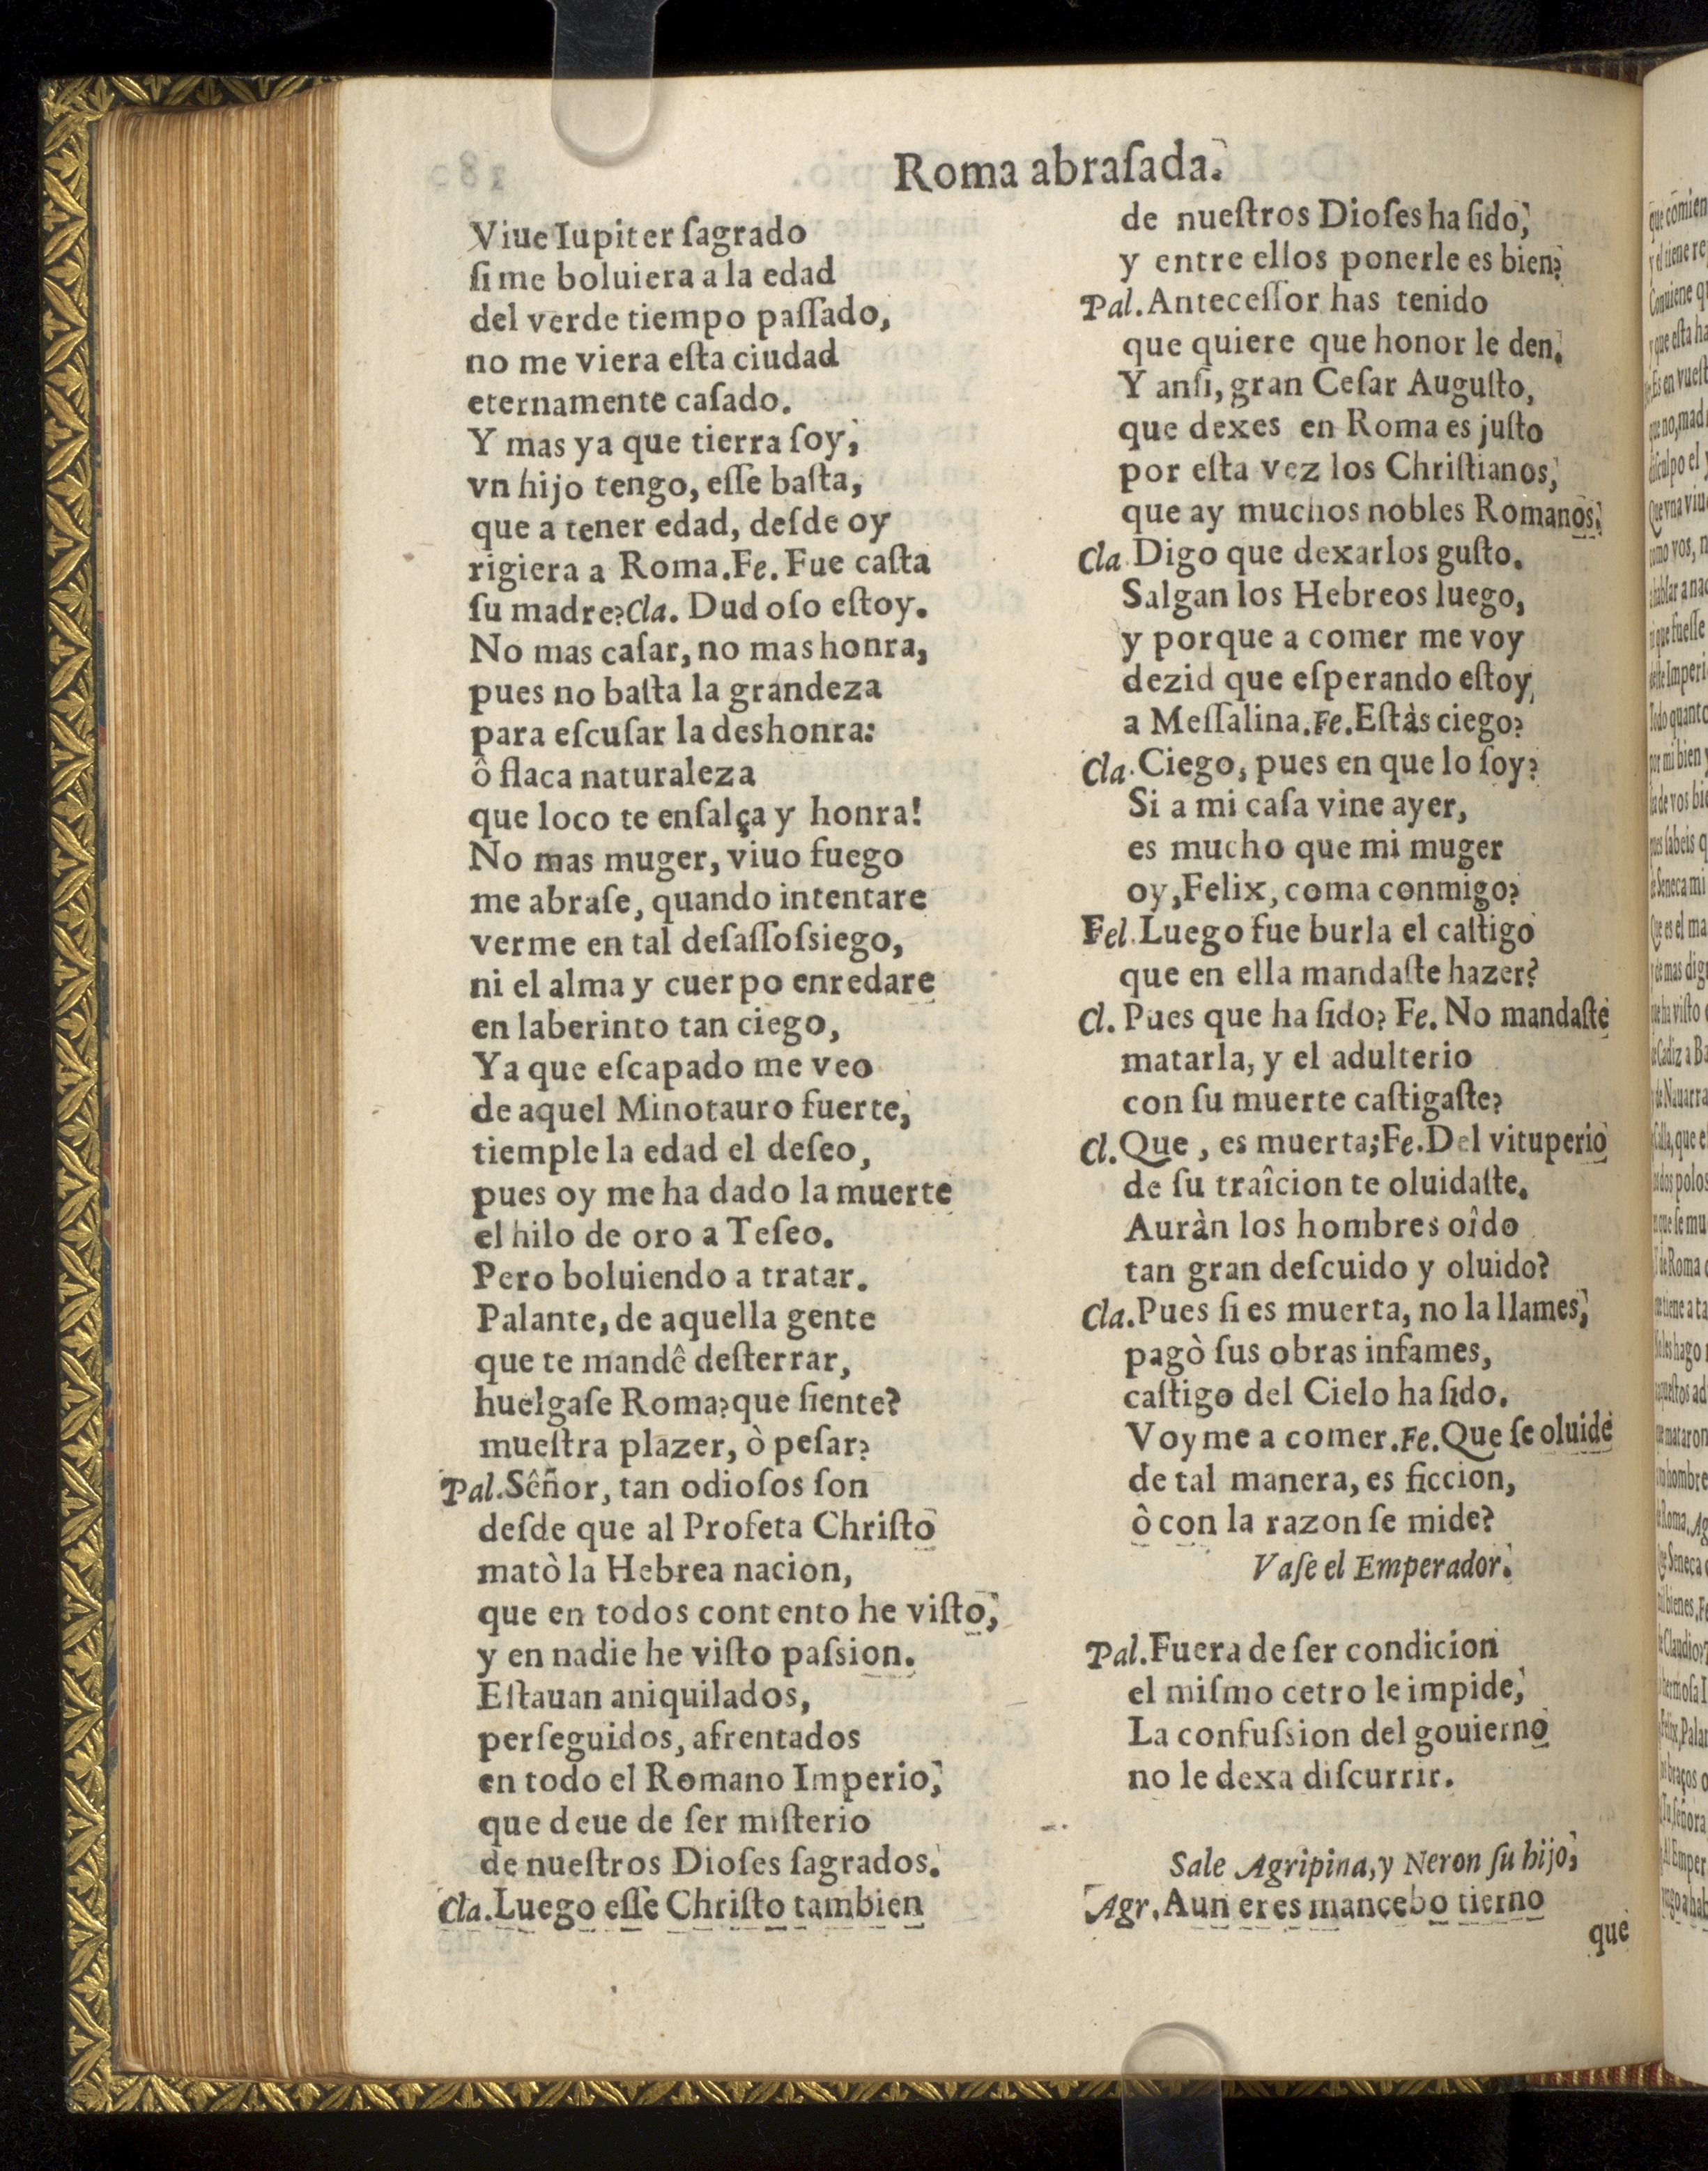 Roma abraſada.
Viue Iupiter ſagrado
ſi me boluiera a la edad
del verde tiempo paſſado,
no me viera eſta ciudad
eternamente caſado.
Y mas ya que tierra ſoy,
vn hijo tengo, eſſe baſta,
que a tener edad, deſde oy
rigiera a Roma. Fe. Fue caſta
ſu madre? Cla. Dudoſo eſtoy.
No mas caſar, no mas honra,
pues no baſta la grandeza
para eſcuſar la deshonra:
ô flaca naturaleza
que loco te enſalça y honra!
No mas muger, viuo fuego
me abraſe, quando intentare
verme en tal deſaſſoſsiego,
ni el alma y cuerpo enredare
en laberinto tan ciego,
Ya que eſcapado me veo
de aquel Minotauro fuerte,
tiemple la edad el deſeo,
pues oy me ha dado la muerte
el hilo de oro a Teſeo.
Pero boluiendo a tratar.
Palante, de aquella gente
que te mandê deſterrar,
huelgaſe Roma? que ſiente?
mueſtra plazer, ò peſar?
Pal. Sêñor, tan odioſos ſon
deſde que al Profeta Chriſto
matò la Hebrea nacion,
que en todos contento he viſto,
y en nadie he viſto paſsion.
Eſtauan aniquilados,
perſeguidos, afrentados
en todo el Romano Imperio,
que deue de ſer miſterio
de nueſtros Dioſes ſagrados.
Cla. Luego eſſe Chriſto tambien
de nueſtros Dioſes ha ſido,
y entre ellos ponerle es bien?
Pal. Anteceſſor has tenido
que quiere que honor le den.
Y anſi, gran Ceſar Auguſto,
que dexes en Roma es juſto
por eſta vez los Chriſtianos,
que ay muchos nobles Romanos.
Cla. Digo que dexarlos guſto.
Salgan los Hebreos luego,
y porque a comer me voy
dezid que eſperando eſtoy,
a Meſſalina. Fe. Eſtàs ciego?
Cla. Ciego, pues en que lo ſoy?
Si a mi caſa vine ayer,
es mucho que mi muger
oy, Felix, coma conmigo?
Fel. Luego fue burla el caſtigo
que en ella mandaſte hazer?
Cl. Pues que ha ſido? Fe. No mandaſte
matarla, y el adulterio
con ſu muerte caſtigaſte?
Cl. Que, es muerta; Fe. Del vituperio
de ſu traîcion te oluidaſte.
Auràn los hombres oîdo
tan gran deſcuido y oluido?
Cla. Pues ſi es muerta, no la llames,
pagò ſus obras infames,
caſtigo del Cielo ha ſido.
Voyme a comer. Fe. Que ſe oluide
de tal manera, es ficcion,
ò con la razon ſe mide?
Vaſe el Emperador.
Pal. Fuera de ſer condicion
el miſmo cetro le impide,
La confuſsion del gouierno
no le dexa diſcurrir.
Sale Agripina, y Neron ſu hijo,
Agr. Aun eres mancebo tierno
que